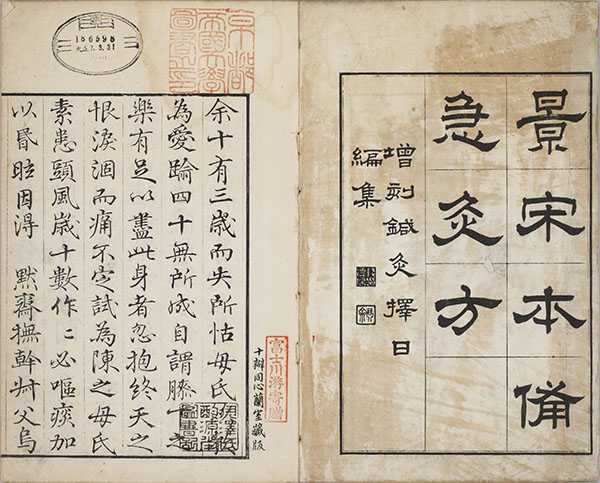 景宋本備
急灸方
增刻鍼灸擇日
編集
京都
帝國大學
圖書之印
186698
大正7.3.31
余十有三歲而失所怙母氏
為愛踰四十無所成自謂膝下之
樂有足以盡此身者忽抱終天之
恨淚涸而痛不定試為陳之母氏
素患頭風歲十數作〻必嘔痰加
以昬眩因得 默齋撫幹叔父烏
富士川游寄贈
十瓣同心蘭室藏版